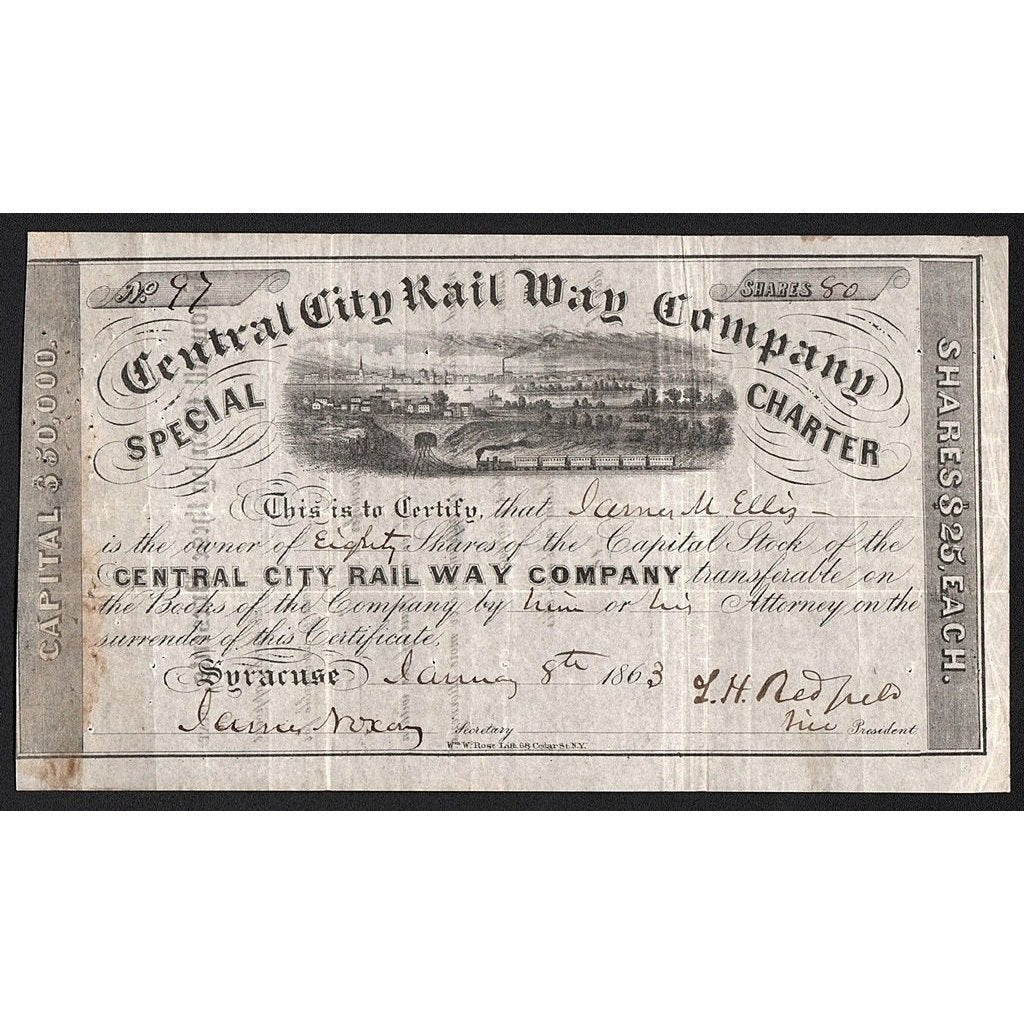 No 97
SHARES 80
Central City Rail Way Company
SPECIAL CHARTER
CAPITAL $50,000.
SHARES $25, EACH.
This is to Certify, that James M Ellis
is the owner of Eighty Shares of the Capital Stock of the
CENTRAL CITY RAIL WAY COMPANY transferable on
the Books of the Company by him or his Attorney on the
surrender of this Certificate.
Syracuse January 8th 1863
L. H. Redfield
James Noxon Secretary
Vice President
Wm W. Rose Lith. 68 Cedar St. N.Y.